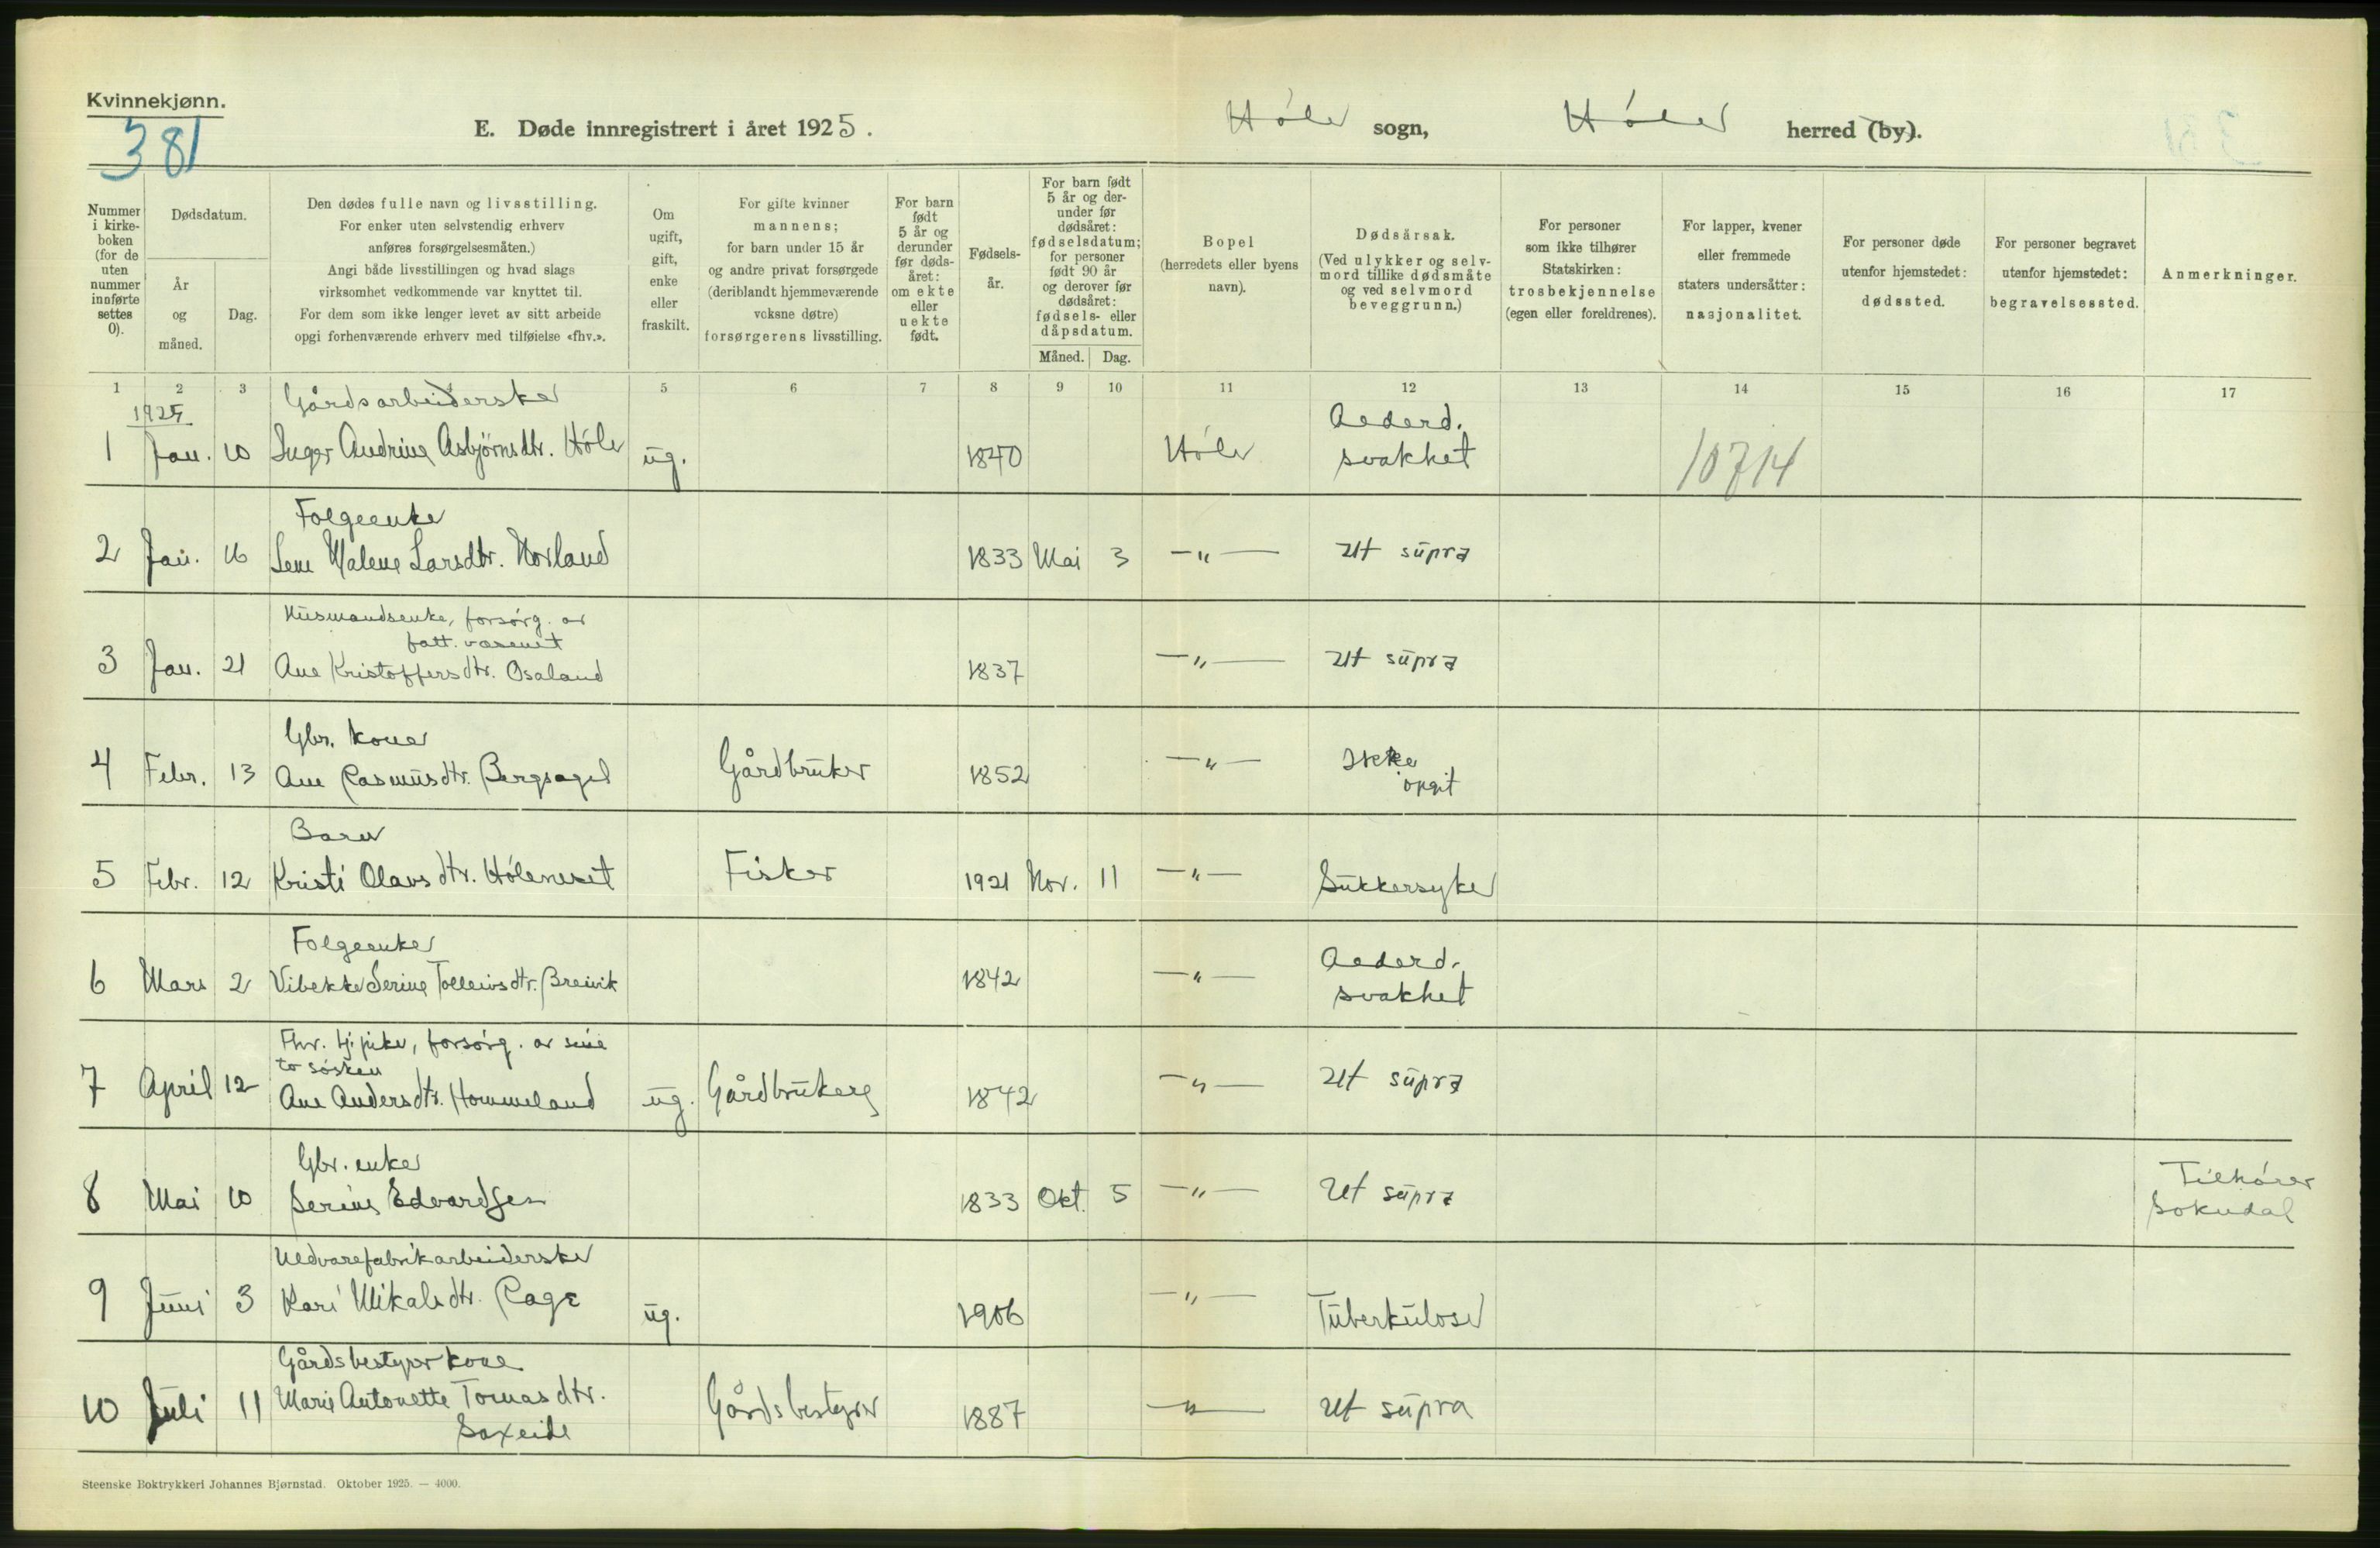 Kvinnekjønn.
381
E. Døde innregistrert i året 1925.
Høle sogn, Høle herred (by).
Nummer i kirkeboken (for de uten nummer innførte settes 0).
Dødsdatum.
År og måned.
Dag.
Den dødes fulle navn og livsstilling.
For enker uten selvstendig erhverv
anføres forsørgelsesmåten.)
Angi både livsstillingen og hvad slags
virksomhet vedkommende var knyttet til.
For dem som ikke lenger levet av sitt arbeide
opgi forhenværende erhverv med tilføielse «fhv.».
Om ugift, gift, enke eller fraskilt.
For gifte kvinner
mannens;
for barn under 15 år
og andre privat forsørgede
(deriblandt hjemmeværende
voksne døtre)
forsørgerens livsstilling.
For barn født 5 år og derunder før dødsåret: om ekte eller uekte født.
Fødselsår.
For barn født 5 år og derunder før dødsåret: fødselsdatum; for personer født 90 år og derover før dødsåret: fødsels- eller dåpsdatum.
Måned. Dag.
Bopel
(herredets eller byens
navn).
Dødsårsak.
(Ved ulykker og selvmord tillike dødsmåte og ved selvmord beveggrunn.)
For personer
som ikke tilhører
Statskirken:
trosbekjennelse
(egen eller foreldrenes).
For lapper, kvener
eller fremmede
staters undersåtter:
nasjonalitet.
For personer døde
utenfor hjemstedet:
dødssted.
For personer begravet
utenfor hjemstedet:
begravelsessted.
Anmerkninger.
1 2 3 5 6 7 8 9 10 11 12 13 14 15 16 17
1925
Gårdsarbeiderske
1 Jan. 10 Inger Andrine Asbjørnsdtr. Høle ug. 1840 Høle Alderd. svakhet 10714
Folgeenke
2 Jan. 16 Lene Malene Larsdtr. Norland 1833 Mai 3 —"— Ut supra
Husmandsenke, forsørg. av
fatt. væsenet
3 Jan. 21 Ane Kristoffersdtr. Osaland 1837 —"— Ut supra
Gbr. kone
4 Febr. 13 Ane Rasmusdtr. Bergsagel Gårdbruker 1852 —"— Ikke opgit
Barn
5 Febr. 12 Kristi Olavsdtr. Høleneset Fisker 1921 Nov. 11 —"— Sukkersyke
Folgeenke
6 Mars 2 Vibekke Serine Tolleivsdtr. Breivik 1842 —"— Alderd. svakhet
Fhv. tj. pike, forsørg. av sine
to søsken
7 April 12 Ane Andersdtr. Hommeland ug. Gårdbrukere 1842 —"— Ut supra
Gbr. enke
8 Mai 10 Serine Edvardsen 1833 Okt. 5 —"— Ut supra Tilhører Sokndal
Uldvarefabrikarbeiderske
9 Juni 3 Kari Mikalsdtr. Rage ug. 1906 —"— Tuberkulose
Gårdsbestyrerkone
10 Juli 11 Marie Antonette Tomasdtr. Gårdsbestyrer 1887 —"— Ut supra
Saxeide
Steenske Boktrykkeri Johannes Bjørnstad. Oktober 1925. — 4000.